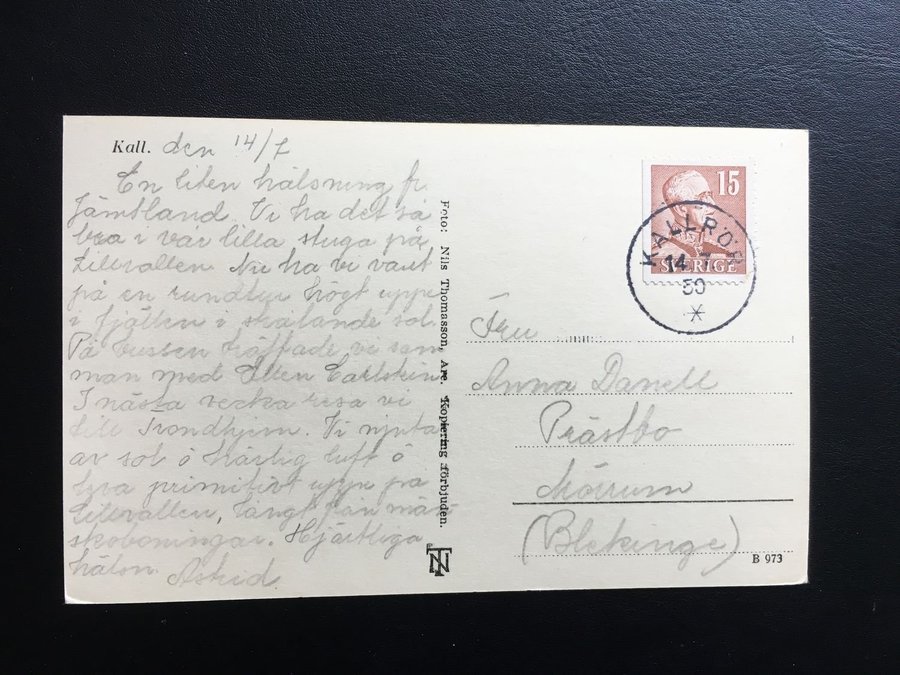 Kall. den 14/7
En liten hälsning fr.
Jämtland. Vi ha det så
bra i vår lilla stuga på
Lillvallen. Nu ha vi varit
på en rundtur högt uppe
i fjällen i skålande sol.
På bussen träffade vi sam
man med Ellen Carlstein
I nästa vecka resa vi
till Trondhjem. Vi njuta
av sol o härlig luft o
leva primitivt uppe på
Lillvallen, långt från män
skoboningar. Hjärtliga
hälsn Astrid
Foto: Nils Thomasson, Åre. Kopiering förbjuden.
NT
15
SVERIGE
KALLRÖR
14 7
50
Fru
Anna Danell
Prästbo
Mörrum
(Blekinge)
B 973